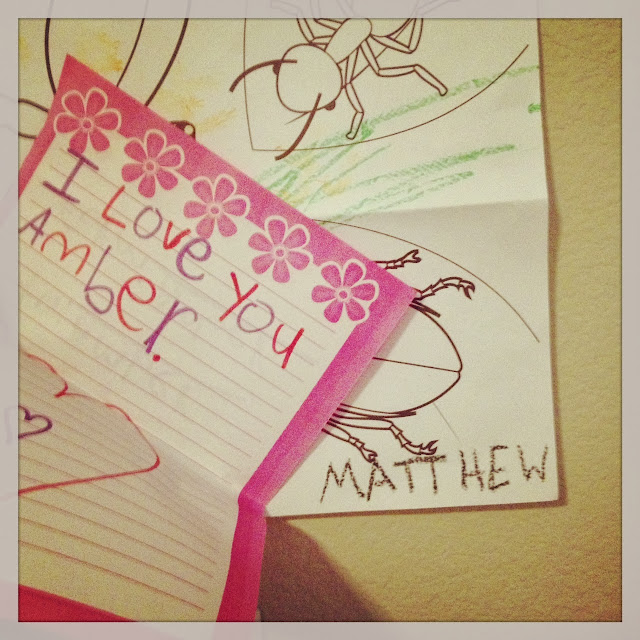 I Love You
Amber.
MATTHEW